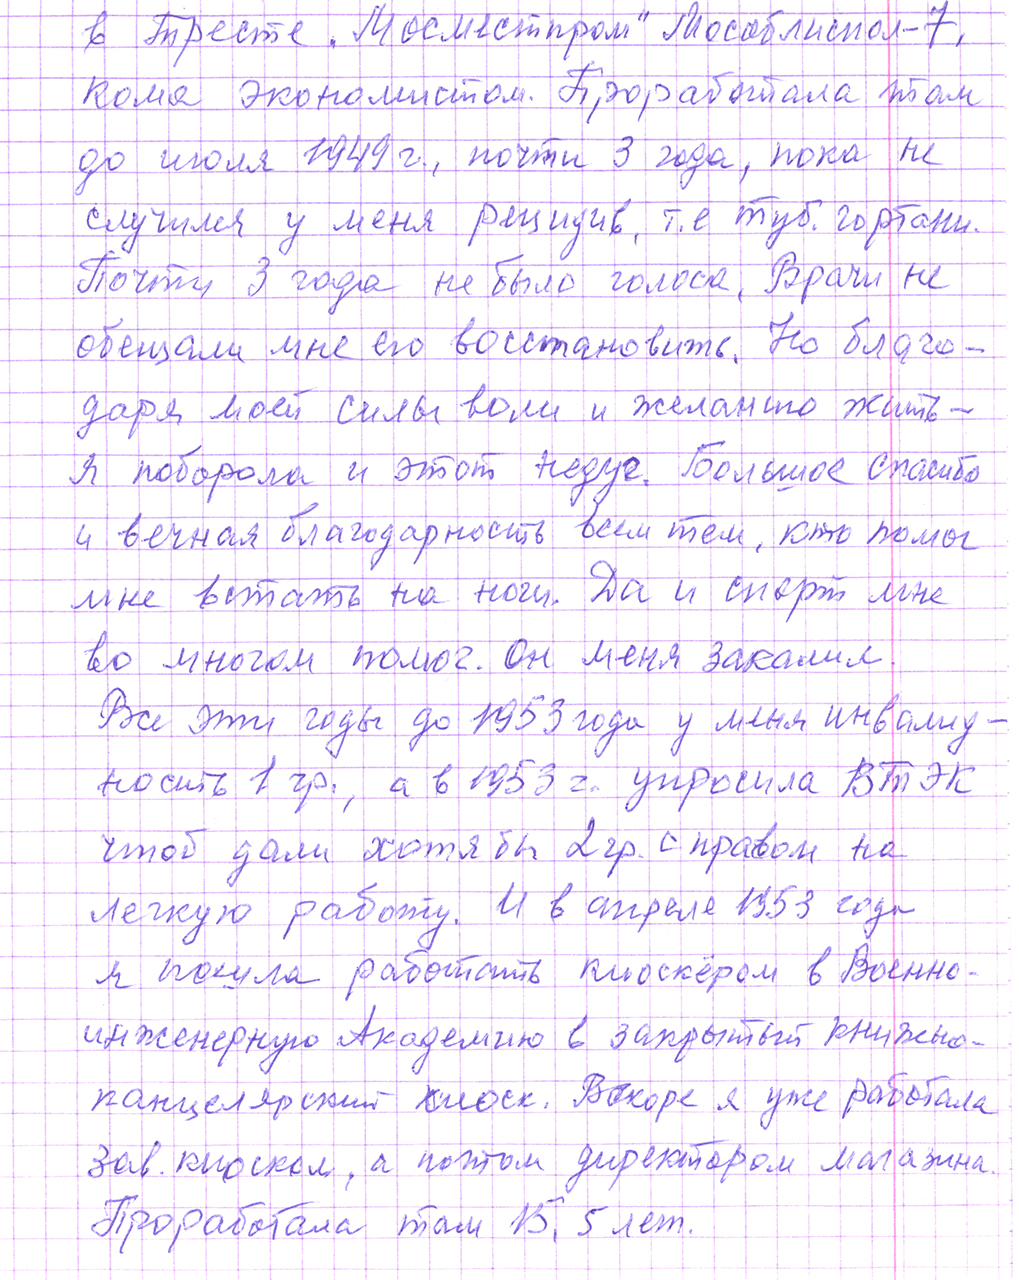 в Тресте „Мосместпром" Мособлиспол-7,
кома экономистом. Проработала там
до июля 1949 г., почти 3 года, пока не
случился у меня рецидив, т.е туб. гортани.
Почти 3 года не было голоса, Врачи не
обещали мне его восстановить. Но благо-
даря моей силы воли и желанию жить-
я поборола и этот недуг. Большое спасибо
и вечная благодарность всем тем, кто помог
мне встать на ноги. Да и спорт мне
во многом помог. Он меня закалил.
Все эти годы до 1953 года у меня инвалид-
ность 1 гр., а в 1953 г. упросила ВТЭК
чтоб дали хотя бы 2 гр. с правом на
легкую работу. И в апреле 1953 года
я пошла работать киоскёром в Военно-
инженерную Академию в закрытый книжно-
канцелярский киоск. Вскоре я уже работала
зав. киоском, а потом директором магазина.
Проработала там 15,5 лет.